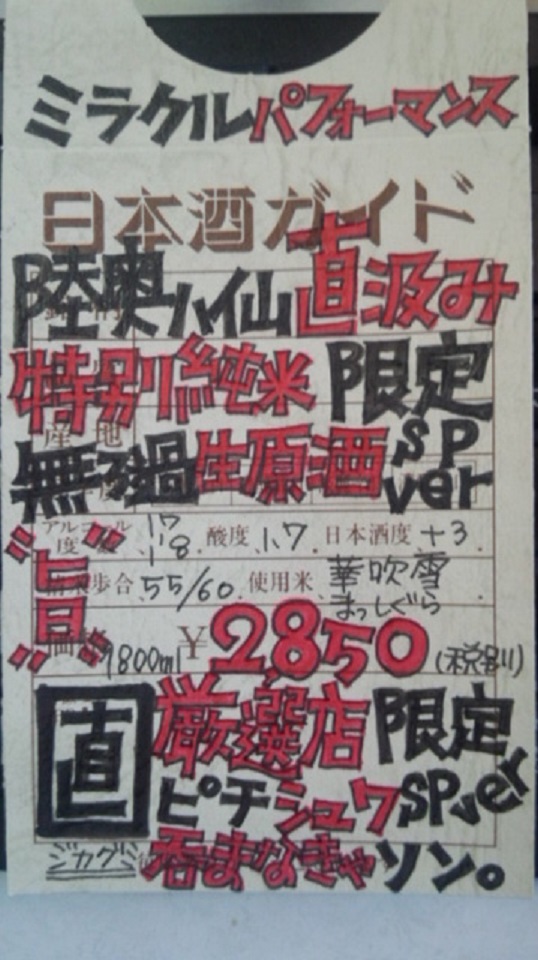 ミラクルパフォーマンス
日本酒ガイド
陸奥ハ仙直汲み
特別純米限定
産地
無ろ過生原酒SPver
アルコール度 17 18 酸度 1.7 日本酒度 +3
"旨" 歩合 55/60 使用米 華吹雪 まっしぐら
1800ml ¥2850(税別)
直 厳選店限定
ピチシュワSPver
ジカグミ 呑まなきゃソン。